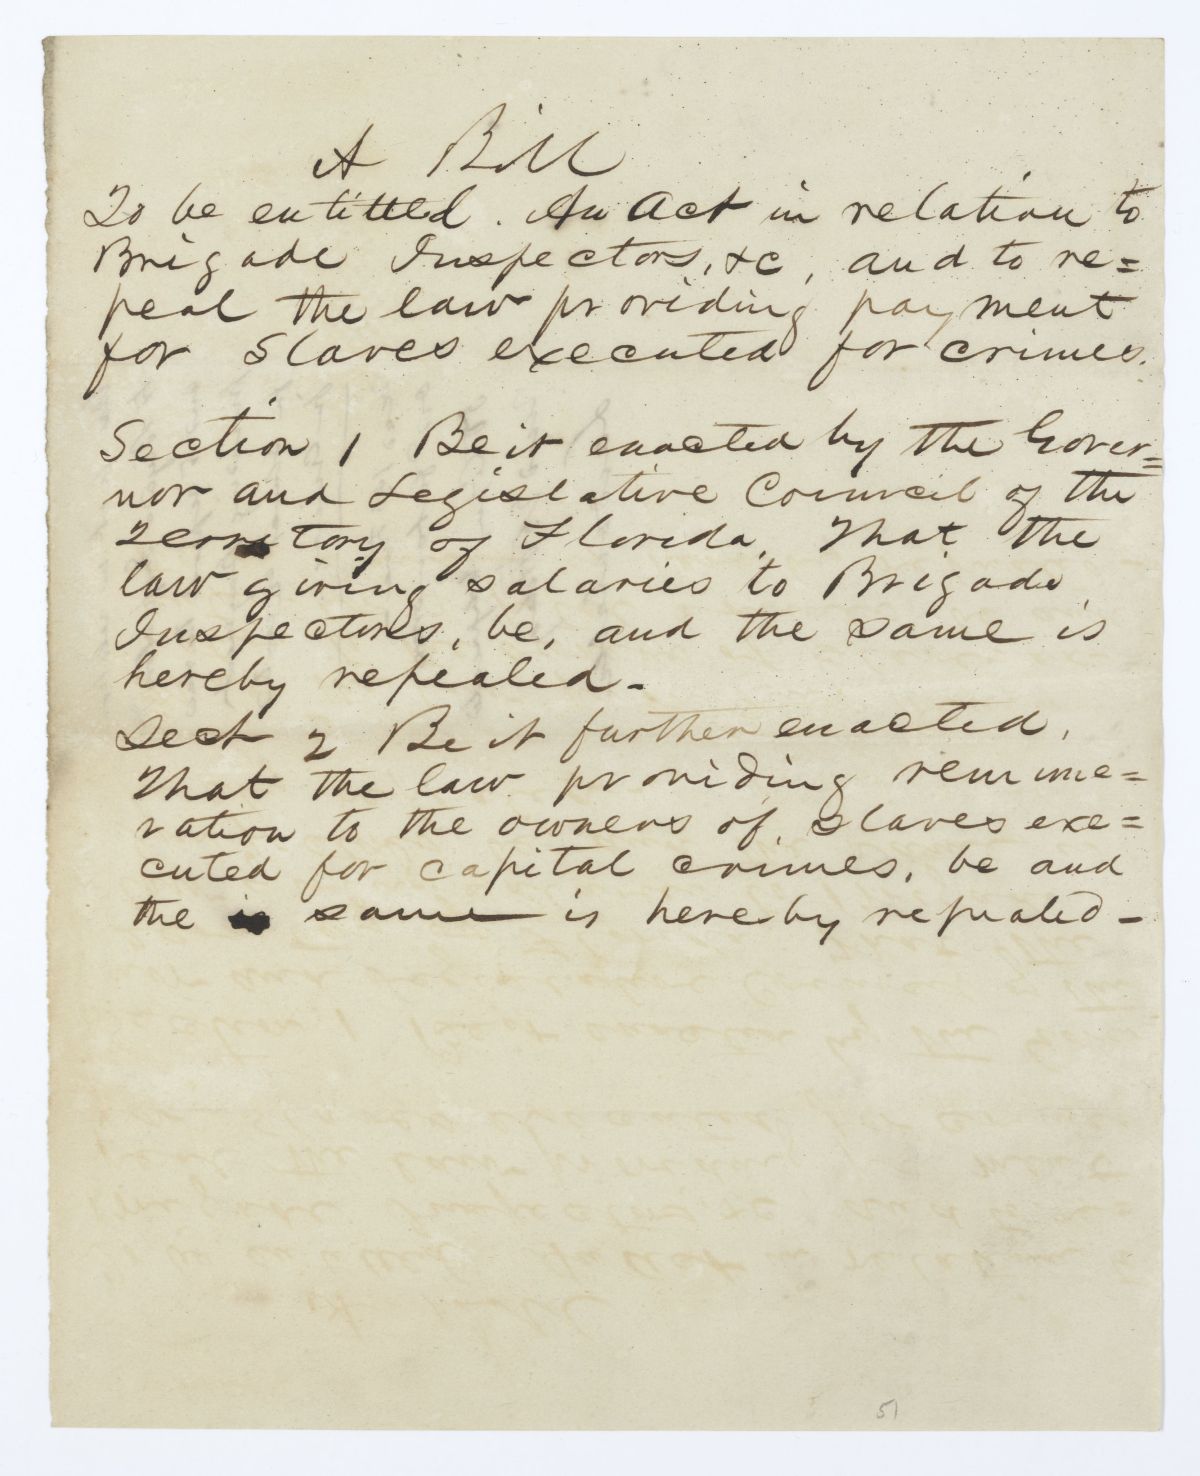 A Bill
To be entitled. An Act in relation to
Brigade Inspectors, &c, and to re=
peal the law providing payment
for Slaves executed for crimes.
Section 1 Be it enacted by the Gover=
nor and Legislative Council of the
Territory of Florida, That the
law giving salaries to Brigade
Inspectors, be, and the same is
hereby repealed-
Sect 2 Be it further enacted,
That the law providing remune=
ration to the owners of, slaves exe=
cuted for capital crimes, be and
the same is hereby repealed-
51